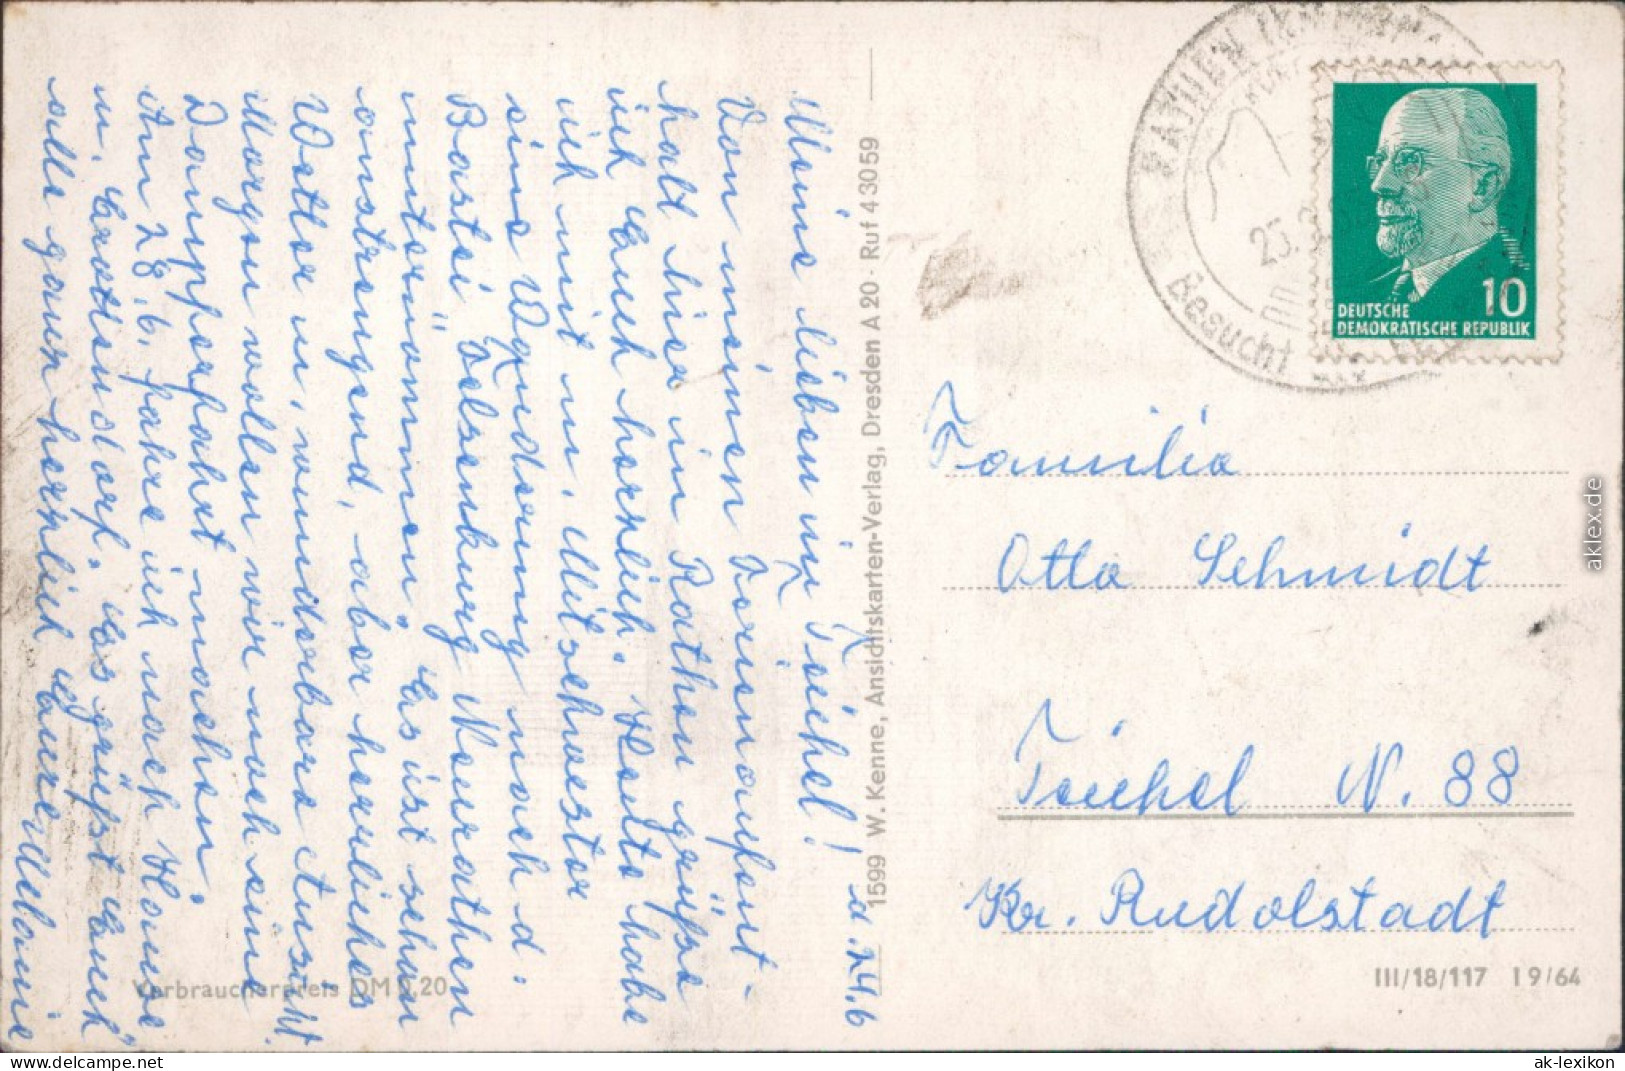 d. 24.6
Meine lieben in Teichel!
Von meinen Ferienaufent-
halt hier in Rathen grüße
ich Euch herzlich. Heute habe
ich mit m. Mitschwester
eine Wanderung nach d.
Bastei Felsenburg Neurathen
unternommen. Es ist schon
anstrengend, aber herrliches
Wetter u. wunderbare Aussicht.
Morgen wollen wir noch eine
Dampferfahrt machen.
Am 28.6. fahre ich nach Hause
n. Crottendorf. Es grüßt Euch
alle ganz herzlich Eure Melanie
1599 W. Kenne, Ansichtskarten-Verlag, Dresden A 20 · Ruf 4 30 59
Verbraucherpreis DM 0,20
RATHEN
25.
Besucht
10
DEUTSCHE
DEMOKRATISCHE REPUBLIK
Familie
Otto Schmidt
Teichel N. 88
Kr. Rudolstadt
III/18/117 I 9/64
aklex.de
https://www.delcampe.net
ak-lexikon